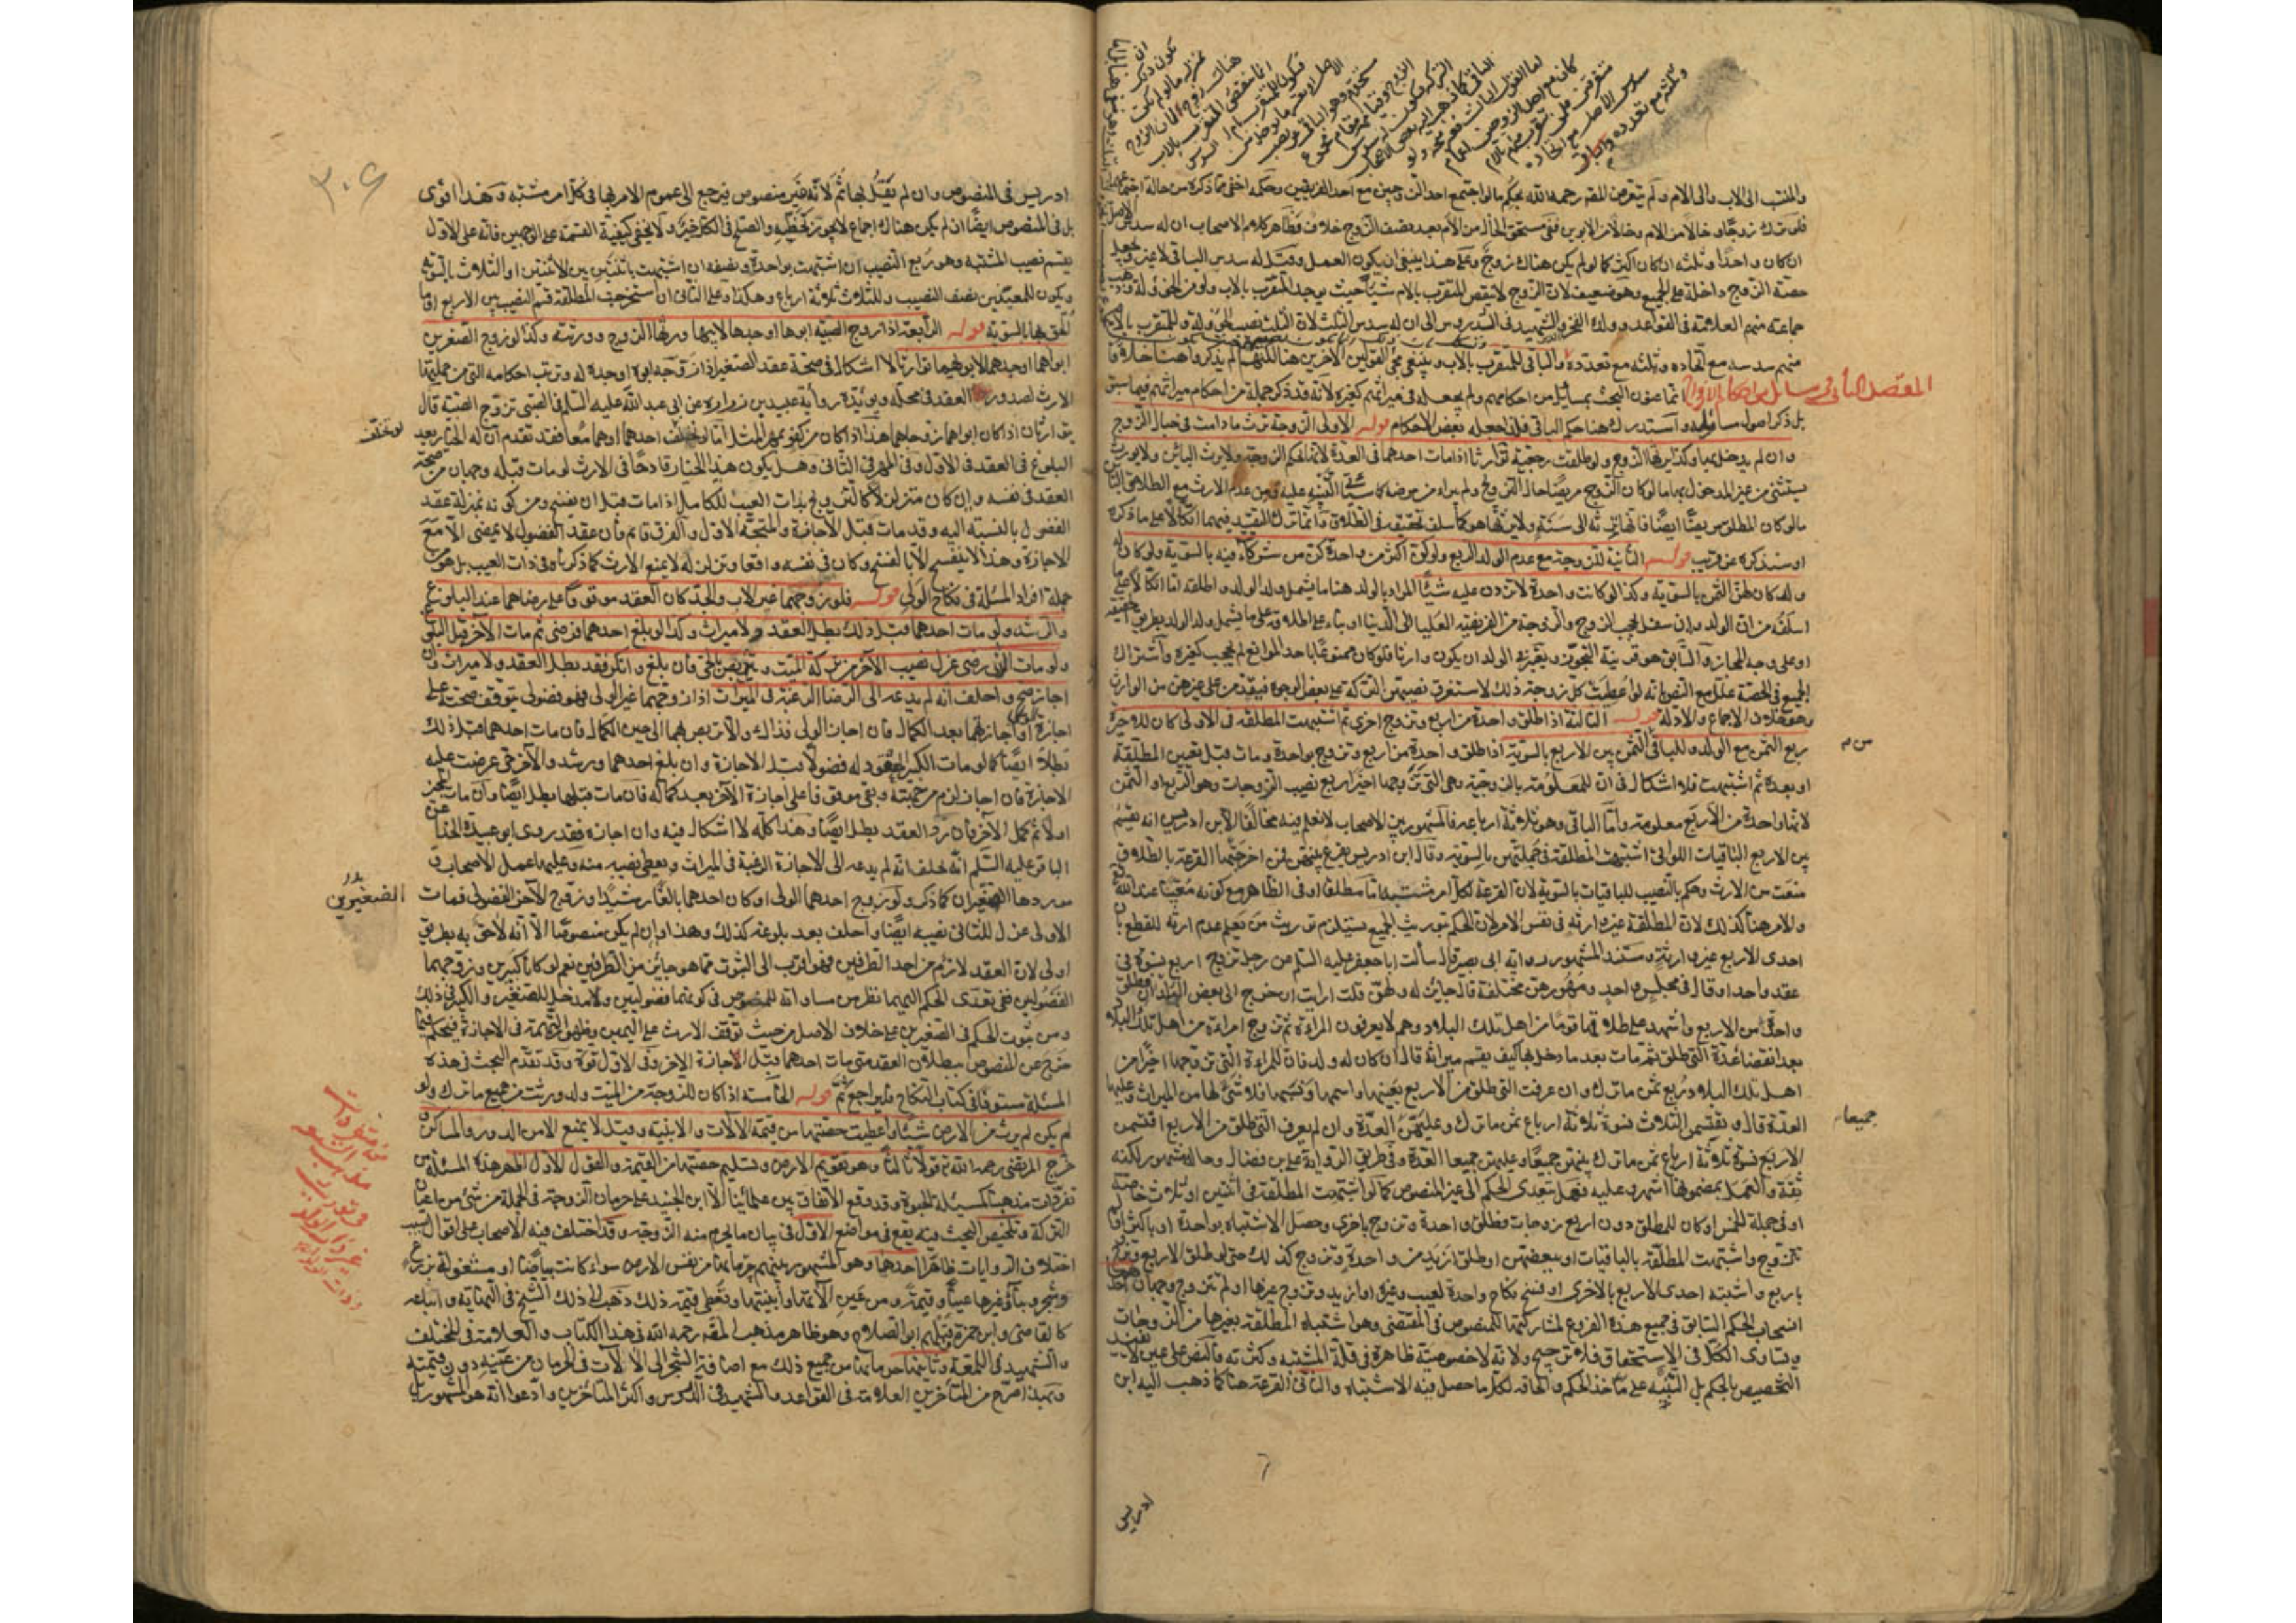 والمنتسب الى الاب والى الام ولم يتعرض المص رحمه الله بحكم ما لو اجتمع احد الزوجين مع احد الفريقين وحكمه اخفى مما ذكره من حالة
فلو ترك زوجا وخالا من الام وخالا من الابوين ففي مستحق الخال من الام بعد نصف الزوج خلاف فظاهر كلام الاصحاب ان له سدس الاصل
ان كان واحدا وثلثه ان كان اكثر كما لو لم يكن هناك زوج وعلى هذا ينبغي ان يكون العمل وقيل له سدس الباقي لا غير
حصة الزوج داخلة على الجميع وهو ضعيف لان الزوج لا ينقص المتقرب بالام شيئا حيث يوجد المتقرب بالاب
جماعة منهم العلامة في القواعد وولده الفخر والشهيد في الدروس الى ان له سدس الثلث لان الثلث نصيب الخؤلة وللمتقرب بالام
منهم سدسه مع اتحاده وثلثه مع تعدده والباقي للمتقرب بالاب وينبغي مجئ القولين الاخرين هنا لكنهم لم يذكروا هنا خلافا
المقصد الثاني في مسائل من احكام الازواج انما عنون البحث بمسائل من احكامهم ولم يجعله في ميراثهم كغيره لانه قد ذكر جملة من احكام ميراثهم فيما سبق
بل ذكر اصول مسائله واستدرك هنا حكم الباقي فلذا جعله بعض الاحكام قوله الاولى الزوجة ترث ما دامت في حبال الزوج
وان لم يدخل بها وكذا يرثها الزوج ولو طلقت رجعية توارثا اذا مات احدهما في العدة لانها بحكم الزوجة ولا يرث البائن ولا يورث
يستثنى من غير المدخول بها ما لو كان الزوج مريضا حال التزويج ولم يبرء من مرضه كما سيأتي التنبيه عليه ومن عدم الارث مع الطلاق البائن
ما لو كان المطلق مريضا ايضا فانها ترثه الى سنة ولا يرثها هو كما سلف تحقيقه في الطلاق وانما ترك التقييد فيهما اتكالا على ما ذكره
او سنذكره عن قريب قوله الثانية للزوجة مع عدم الولد الربع ولو كن اكثر من واحدة كن شركاء فيه بالسوية ولو كان له
ولد كان لهن الثمن بالسوية وكذا لو كانت واحدة لا تزدن عليه شيئا المراد بالولد هنا ما يشمل ولد الولد واطلقه اما اتكالا على
اسلفه من ان الولد وان سفل يحجب الزوج والزوجة من الفريضة العليا الى الدنيا او بناء على اطلاقه على ما يشمل ولد الولد بطريق الحقيقة
او على وجه المجاز والسابق هو قرينة التجوز ويعتبر في الولد ان يكون وارثا فلو كان ممنوعا باحد الموانع لم يحجب كغيره واشتراك
الجميع في الحصة علل مع النص بانه لو اعطيت كل زوجة ذلك لاستغرق نصيبهن التركة على بعض الوجوه فيفقد من على غيرهن من الوارث
وهو خلاف الاجماع والادلة قوله الثالثة اذا طلق واحدة من اربع وتزوج اخرى ثم اشتبهت المطلقة في الاولى كان للاخيرة
ربع الثمن مع الولد والباقي الثمن بين الاربع بالسوية اذا طلق واحدة من اربع وتزوج بواحدة ومات قبل تعيين المطلقة
او بعده ثم اشتبهت فلا اشكال في ان للمعلومة بالزوجية وهي التي تزوجها اخيرا ربع نصيب الزوجات وهو الربع او الثمن
لانها واحدة من الاربع معلومة واما الباقي وهو ثلاثة ارباعه فالمشهور بين الاصحاب لا نعلم فيه مخالفا الا ابن ادريس انه يقسم
بين الاربع الباقيات اللواتي اشتبهت المطلقة في جملتهن بالسوية وقال ابن ادريس يقرع بينهن فمن اخرجتها القرعة بالطلاق
منعت من الارث وحكم بالنصيب للباقيات بالسوية لان القرعة لكل امر مشتبه اما مطلقا او في الظاهر مع كونه معينا عند الله
والامر هنا كذلك لان المطلقة غير وارثة في نفس الامر ولان الحكم بتوريث الجميع يستلزم توريث من يعلم عدم ارثه للقطع بان
احدى الاربع غير وارثة ومستند المشهور رواية ابي بصير قال سألت ابا جعفر عليه السلم عن رجل تزوج اربع نسوة في
عقد واحد او قال في مجلس واحد ومهورهن مختلفة قال جائز له ولهن قلت ارايت ان خرج الى بعض البلدان فطلق
واحدة من الاربع واشهد على طلاقها قوما من اهل تلك البلاد وهم لا يعرفون المراة ثم تزوج امراة من اهل تلك البلاد
بعد انقضاء عدة التي طلق ثم مات بعد ما دخل بها كيف يقسم ميراثه قال ان كان له ولد فان للمراة التي تزوجها اخيرا من
اهل تلك البلاد ربع ثمن ما ترك وان عرفت التي طلق من الاربع بعينها واسمها ونسبها فلا شئ لها من الميراث وعليها
العدة قال ويقتسمن الثلاث نسوة ثلاثة ارباع ثمن ما ترك وعليهن العدة وان لم يعرف التي طلق من الاربع اقتسمن
الاربع نسوة ثلاثة ارباع ثمن ما ترك بينهن جميعا وعليهن جميعا العدة وفي طريق الرواية علي بن فضال وحاله مشهور لكنه
ثقة والعمل بمضمونها اشهر وعليه فهل يتعدى الحكم الى غير المنصوص كما لو اشتبهت المطلقة في اثنتين او ثلاث خاصة
او في جملة الخمس او كان للمطلق دون اربع زوجات فطلق واحدة وتزوج باخرى وحصل الاشتباه بواحدة او باكثر او لم
يتزوج واشتبهت المطلقة بالباقيات او ببعضهن او طلق ازيد من واحدة وتزوج كذلك حتى لو طلق الاربع وتزوج
باربع واشتبه احدى الاربع بالاخرى او فسخ نكاح واحدة لعيب وغيره او ازيد وتزوج غيرها او لم يتزوج وجهان احدهما
انسحاب الحكم السابق في جميع هذه الفروع لمشاركتها للمنصوص في المقتضى وهو اشتباه المطلقة بغيرها من الزوجات
وتساوى الكل في الاستحقاق فلا ترجيح ولانه لا خصوصية ظاهرة في قلة المشتبه وكثرته فالنص على عين لا يفيد
التخصيص بالحكم بل التنبيه على مأخذ الحكم والحاقه لكل ما حصل فيه الاشتباه والثاني القرعة هنا كما ذهب اليه ابن
جميعا
ادريس
٣٠٤
ادريس في المنصوص وان لم يقل بها ثم لانه غير منصوص فيرجع الى عموم الامر بها في كل امر مشتبه وهذا اقوى
بل في المنصوص ايضا ان لم يكن هناك اجماع لا يجوز تخطيه والصلح في الكل خير ولا يخفى كيفية القسمة على الوجهين فانه على الاول
يقسم نصيب المشتبه وهو ربع النصيب ان اشتبهت بواحدة ونصفه ان اشتبهت باثنتين بين الاثنتين او الثلاث بالسوية
ويكون للمعينتين نصف النصيب وللثلاث ثلاثة ارباع وهكذا وعلى الثاني ان استخرجت المطلقة قسم النصيب بين الاربع او ما
الحق بها بالسوية قوله الرابعة اذا زوج الصبية ابوها او جدها لابيها ورثها الزوج وورثته وكذا لو زوج الصغيرين
ابواهما او جدهما لابويهما توارثا لا اشكال في صحة عقد الصغير اذا زوجه ابوه او جده له وترتب احكامه التي من جملتها
الارث لصدور العقد في محله ويؤيده رواية عبيد بن زراره عن ابي عبد الله عليه السلم في الصبي تزوج الصبية قال
يتوارثان اذا كان ابواهما زوجاهما هذا اذا كان من كفو بمهر المثل اما لو تخلف احدهما او هما معا فقد تقدم ان له الخيار بعد
البلوغ في العقد في الاول وفي المهر في الثاني وهل يكون هذا الخيار قادحا في الارث لو مات قبله وجهان من صحة
العقد في نفسه وان كان متزلزلا كالتزويج بذات العيب للكامل اذا مات قبل ان يفسخ ومن كونه بمنزلة عقد
الفضول بالنسبة اليه وقد مات قبل الاجازة والمتجه الاول والفرق قائم فان عقد الفضول لا يمضى الا مع
الاجازة وهذا لا ينفسخ الا بالفسخ وكان في نفسه واقعا وتزلزله لا يمنع الارث كما ذكرناه في ذات العيب بل هو من
جملة افراد المسئلة في نكاح الولى قوله فلو زوجهما غير الاب والجد كان العقد موقوفا على رضاهما عند البلوغ
والرشد ولو مات احدهما قبل ذلك بطل العقد ولا ميراث وكذا لو بلغ احدهما فرضى ثم مات الآخر قبل البلوغ
ولو مات الذي رضى عزل نصيب الآخر من تركة الميت وتربص بالحي فان بلغ وانكر فقد بطل العقد ولا ميراث وان
اجاز صح واحلف انه لم يدعه الى الرضا الرغبة في الميراث اذا زوجهما غير الولى فهو فضولى يتوقف صحته على
اجازة الولى او اجازتهما بعد الكمال فان اجاز الولى فذاك والا تربص بهما الى حين الكمال فان مات احدهما قبل ذلك
بطل ايضا كما لو مات الكبير المعقود له فضولا قبل الاجازة وان بلغ احدهما ورشد والآخر حي عرضت عليه
الاجازة فان اجاز لزم من جهته وبقي موقوفا على اجازة الآخر بعد كماله فان مات قبلها بطل ايضا وان مات المجيز
اولا ثم كمل الآخر فان رد العقد بطل ايضا وهذا كله لا اشكال فيه وان اجازه فقد روى ابو عبيدة الحذاء عن
الباقر عليه السلم انه يحلف انه لم يدعه الى الاجازة الرغبة في الميراث ويعطى نصيبه منه وعليها عمل الاصحاب و
موردها الصغيران كما ذكر ولو زوج احدهما الولى او كان احدهما بالغا رشيدا وزوج الآخر الفضولى فمات
الاول عزل للثاني نصيبه ايضا واحلف بعد بلوغه كذلك وهذا وان لم يكن منصوصا الا انه لاحق به بطريق
اولى لان العقد لازم من احد الطرفين فهو اقرب الى الثبوت مما هو جائز من الطرفين نعم لو كانا كبيرين وزوجهما
الفضولى ففي تعدى الحكم اليهما نظر من مساواته للمنصوص في كونهما فضوليين ولا مدخل للصغير والكبر في ذلك
ومن ثبوت الحكم في الصغيرين على خلاف الاصل من حيث توقف الارث على اليمين وظهور التهمة في الاجازة فيحكم فيما
خرج عن المنصوص ببطلان العقد متى مات احدهما قبل الاجازة الاخر وفي الاول قوة وقد تقدم البحث في هذه
المسئلة مستوفا في كتاب النكاح فليراجع ثم قوله الخامسة اذا كان للزوجة من الميت ولد ورثت من جميع ما ترك ولو
لم يكن لم يرث من الارض شيئا واعطيت حصتها من قيمة الالات والابنية وقيل لا يمنع الا من الدور والمساكن
وخرج المرتضى رحمه الله قولا ثالثا وهو تقويم الارض وتسليم حصتها من القيمة والقول الاول اظهر هذه المسئلة من
تفردات مذهبنا كمسئلة الحبوة وقد وقع الاتفاق بين علمائنا الا ابن الجنيد على حرمان الزوجة في الجملة من شئ من اعيان
التركة وتلخيص البحث فيه يقع في مواضع الاول في بيان ما يحرم منه الزوجة وقد اختلف فيه الاصحاب على اقوال بسبب
اختلاف الروايات ظاهرا احدها وهو المشهور بينهم حرمانها من نفس الارض سواء كانت بياضا او مشغولة بزرع
وشجر وبناء وغيرها عينا وقيمة ومن عين الآتها وابنيتها وتعطى قيمة ذلك ذهب الى ذلك الشيخ في النهاية واتباعه
كالقاضى وابن حمزة وقبلهم ابو الصلاح وهو ظاهر مذهب المص رحمه الله في هذا الكتاب والعلامة في المختلف
والشهيد في اللمعة وثانيها حرمانها من جميع ذلك مع اضافة الشجر الى الالات في الحرمان من عينه دون قيمته
وبهذا صرح من المتأخرين العلامة في القواعد والشهيد في الدروس واكثر المتأخرين وادعوا انه هو المشهور
الصغيرين